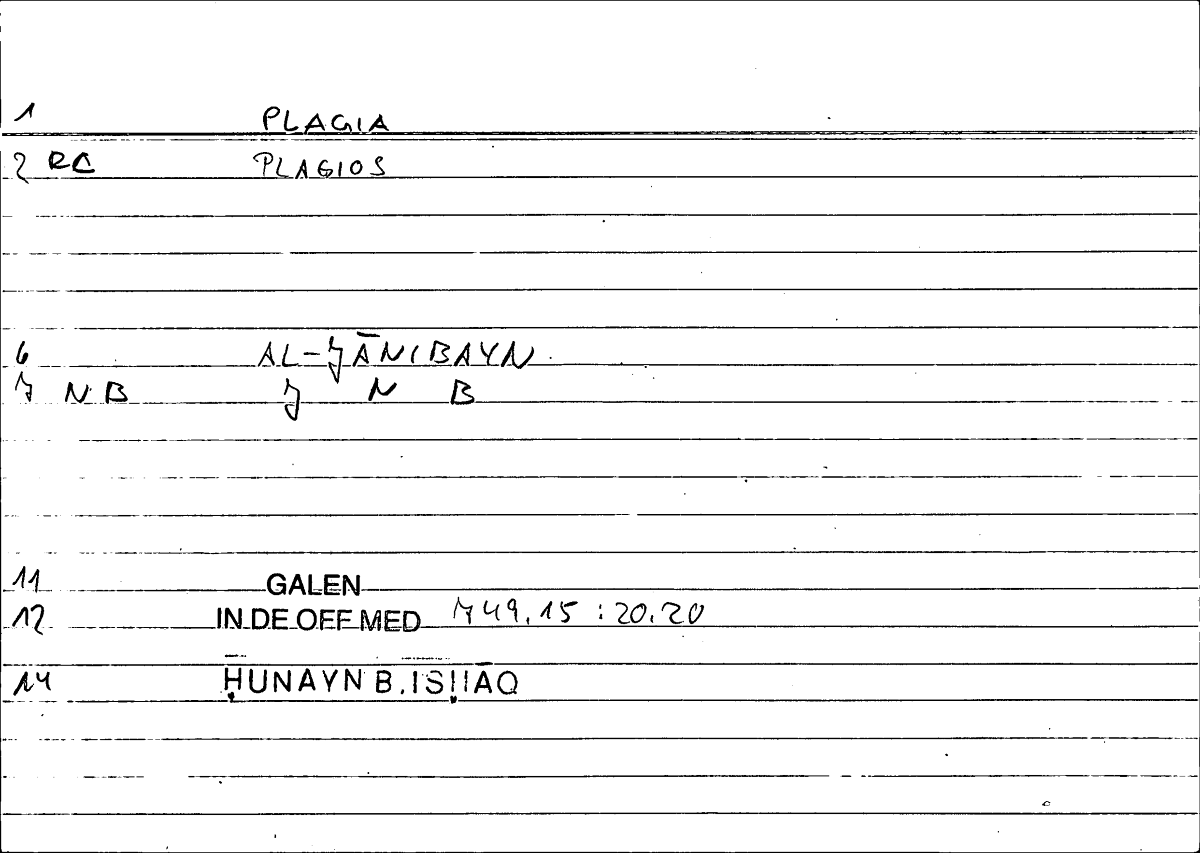 1 PLAGIA
2 RC PLAGIOS
6 AL-ǦĀNIBAYN
7 NB J N B
11 GALEN
12 IN DE OFF MED 749,15 : 20,20
14 ḤUNAYN B. ISḤĀQ